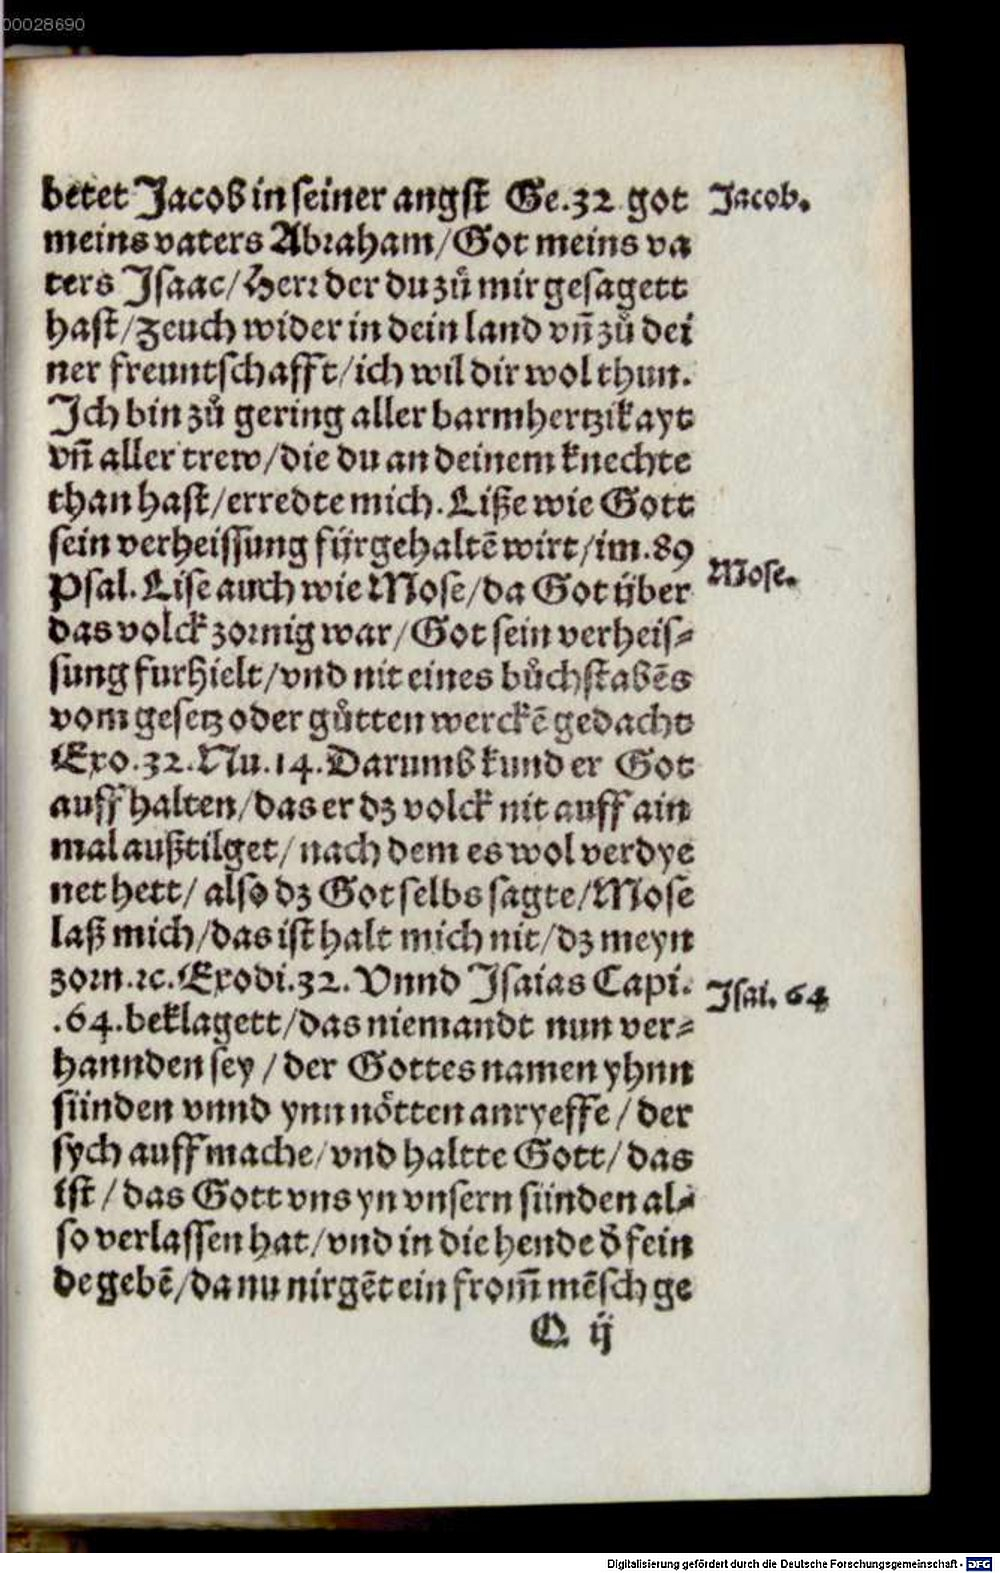 00028690
betet Jacob in seiner angst Ge.32 got
Jacob.
meins vaters Abraham/Got meins va
ters Isaac/Herr der du zů mir gesagett
hast/zeuch wider in dein land vñ zů dei
ner freuntschafft/ich wil dir wol thun.
Ich bin zů gering aller barmhertzikayt
vñ aller trew/die du an deinem knechte
than hast/erredte mich. Liße wie Gott
sein verheissung fürgehaltē wirt/im.89
Mose.
Psal. Lise auch wie Mose/da Got über
das volck zornig war/Got sein verheis-
sung furhielt/vnd nit eines bůchstabēs
vom gesetz oder gůtten werckē gedacht
Exo.32. Nu.14. Darumb kund er Got
auff halten/das er dz volck nit auff ain
mal außtilget/nach dem es wol verdye
net hett/ also dz Got selbs sagte/Mose
laß mich/das ist halt mich nit/dz meyn
zorn.ꝛc. Exodi.32. Vnnd Isaias Capi.
Isai. 64
.64.beklagett/das niemandt nun ver-
hannden sey / der Gottes namen yhnn
sünden vnnd ynn nötten anryeffe / der
sych auffmache/vnd haltte Gott/ das
ist / das Gott vns yn vnsern sünden al-
so verlassen hat/vnd in die hende d̕ fein
de gebē/da nu nirgēt ein from̄ mēsch ge
Q ij
Digitalisierung gefördert durch die Deutsche Forschungsgemeinschaft - DFG